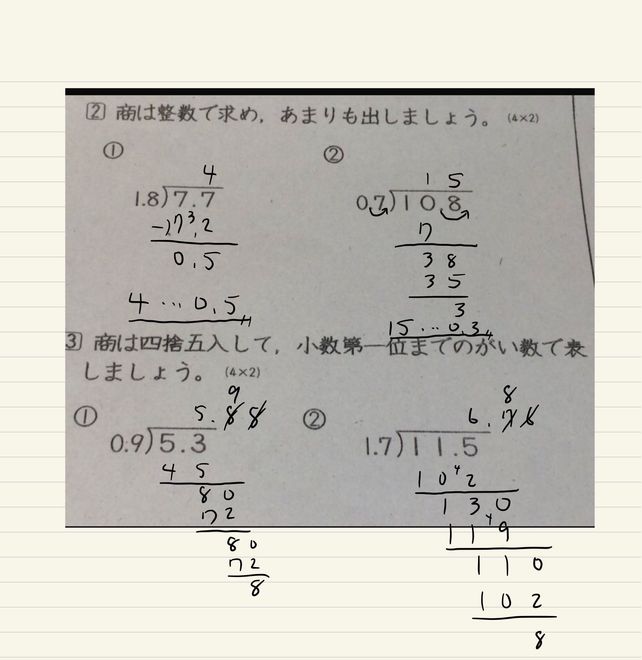 2 商は整数で求め，あまりも出しましょう。(4×2)
① ②
4
1.8)7.7
7.2
0.5
4…0.5
1 5
0.7)10.8
7
3 8
3 5
3
15…0.3
3 商は四捨五入して，小数第一位までのがい数で表
しましょう。(4×2)
① ②
9
5.8 8
0.9)5.3
4 5
8 0
7 2
8 0
7 2
8
8
6.7 6
1.7)11.5
1 0 2
1 3 0
1 1 9
1 1 0
1 0 2
8